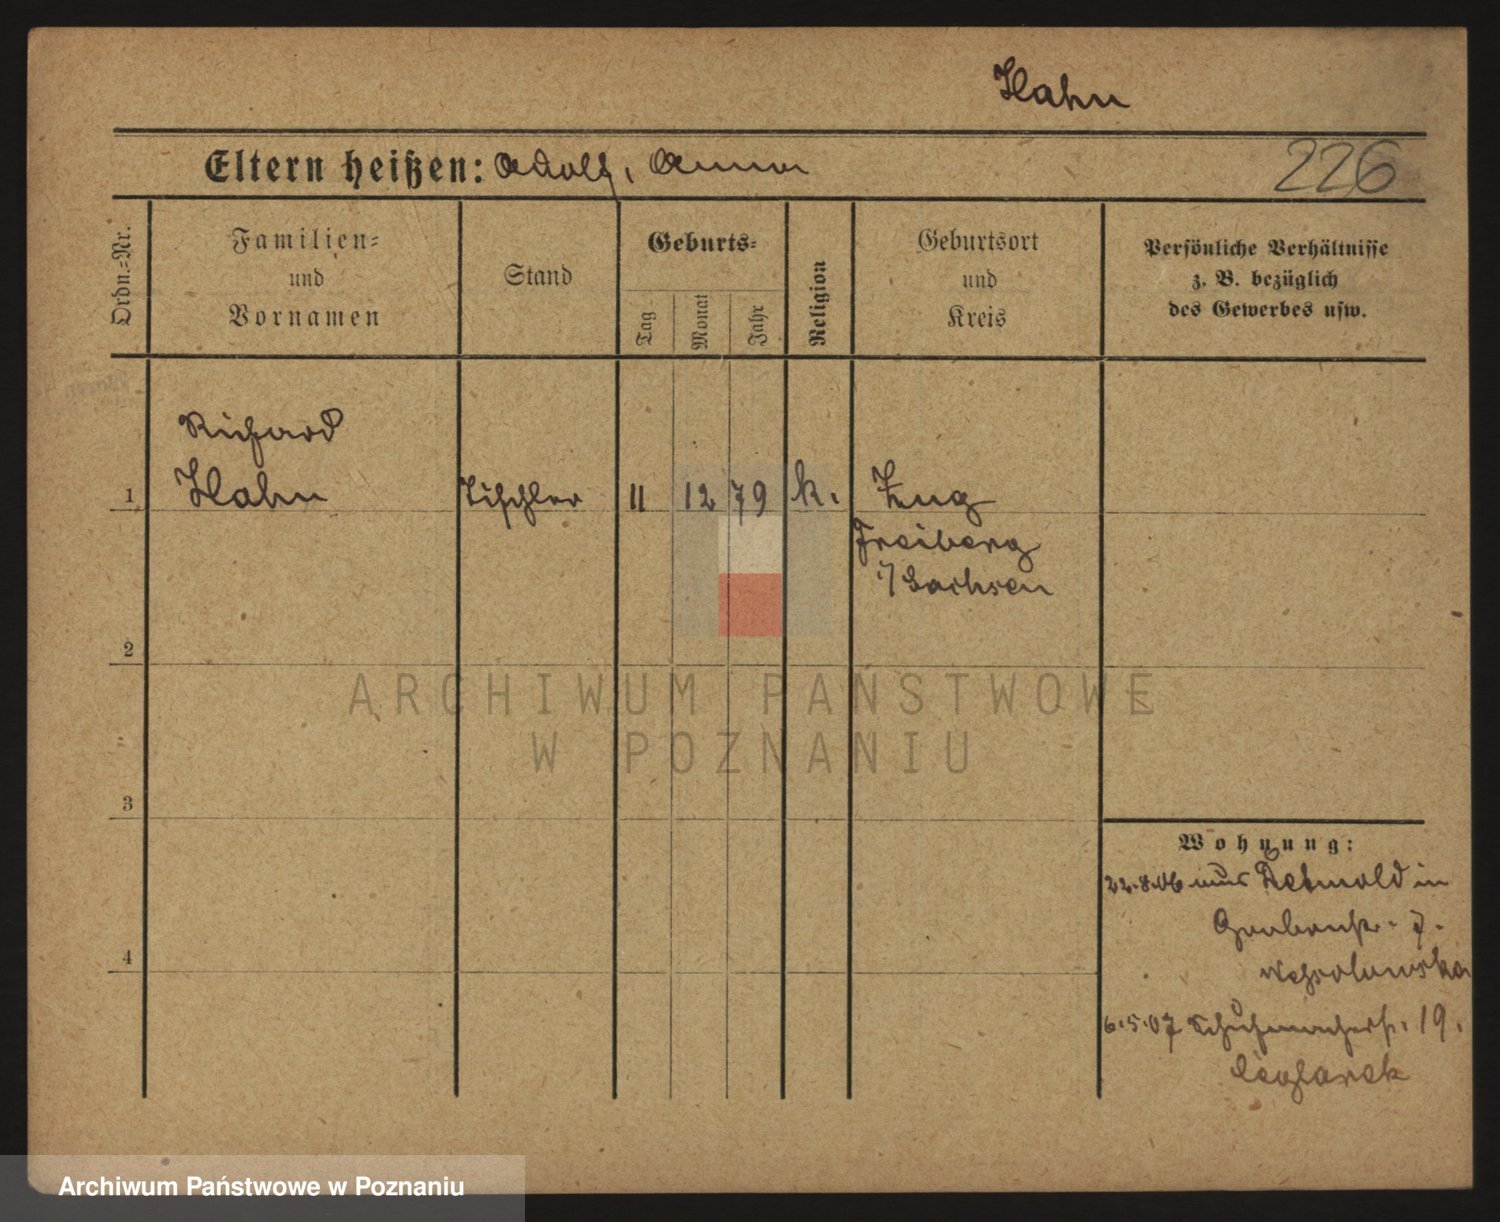 Hahn
Eltern heißen: Adolf, Anna
226
Ordn.-Nr.
Familien-
und
Vornamen
Stand
Geburts-
Tag
Monat
Jahr
Religion
Geburtsort
und
Kreis
Persönliche Verhältnisse
z. B. bezüglich
des Gewerbes usw.
Richard
1 Hahn Tischler 11 12 79 k. Zug
Freiberg
i/ Sachsen
2
ARCHIWUM PAŃSTWOWE
W POZNANIU
3
Wohnung:
22.8.06 aus Detmold in
Grabenstr. 7.
4
6.5.07 Schuhmacherstr. 19.
Ceglarek
Archiwum Państwowe w Poznaniu